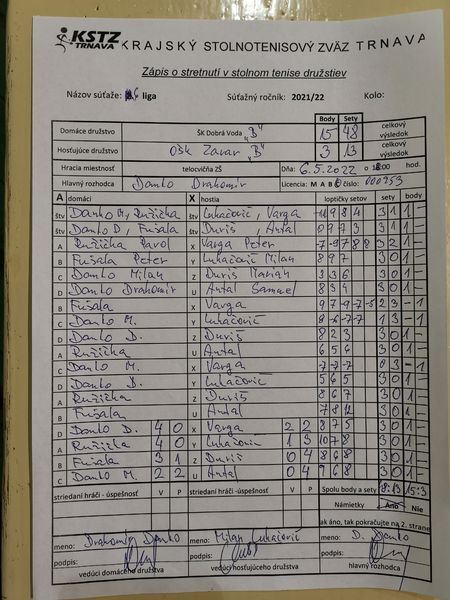 KSTZ TRNAVA KRAJSKÝ STOLNOTENISOVÝ ZVÄZ TRNAVA
Zápis o stretnutí v stolnom tenise družstiev
Názov súťaže: 6 liga Súťažný ročník: 2021/22 Kolo:
Body Sety
Domáce družstvo ŠK Dobrá Voda "B" 15 48 celkový výsledok
Hosťujúce družstvo OŠK Zavar "B" 3 13 celkový výsledok
Hracia miestnosť telocvičňa ZŠ Dňa: 6.5.2022 o 18:00 hod.
Hlavný rozhodca Danko Drahomír Licencia: M A B C číslo: 000253
A domáci X hostia loptičky setov sety body
štv Danko M, Ružička štv Lukačovič, Varga -11 9 8 4 3 1 1 -
štv Danko D, Fušala štv Duriš, Antal 0 9 7 3 3 1 1 -
A Ružička Pavol X Varga Peter 7 -9 7 8 8 3 2 1 -
B Fušala Peter Y Lukačovič Milan 8 9 7 3 0 1 -
C Danko Milan Z Duriš Marian 3 3 6 3 0 1 -
D Danko Drahomír U Antal Samuel 8 3 4 3 0 1 -
B Fušala X Varga 9 7 -9 7 -5 2 3 - 1
C Danko M. Y Lukačovič 8 -6 -7 -7 1 3 - 1
D Danko D. Z Duriš 8 2 3 3 0 1 -
A Ružička U Antal 6 5 6 3 0 1 -
C Danko M. X Varga -7 -7 -7 0 3 - 1
D Danko D. Y Lukačovič 5 6 5 3 0 1 -
A Ružička Z Duriš 8 6 7 3 0 1 -
B Fušala U Antal 7 8 12 3 0 1 -
D Danko D. 4 0 X Varga 2 2 8 7 5 3 0 1 -
A Ružička 4 0 Y Lukačovič 1 3 10 7 8 3 0 1 -
B Fušala 3 1 Z Duriš 0 4 8 6 8 3 0 1 -
C Danko M. 2 2 U Antal 0 4 9 6 8 3 0 1 -
striedaní hráči - úspešnosť V P striedaní hráči - úspešnosť V P Spolu body a sety 48:13 15:3
Námietky Áno Nie
ak áno, tak pokračujte na 2. strane
meno: Drahomír Danko meno: Milan Lukačovič meno: D. Danko
podpis: podpis: podpis:
vedúci domáceho družstva vedúci hosťujúceho družstva hlavný rozhodca